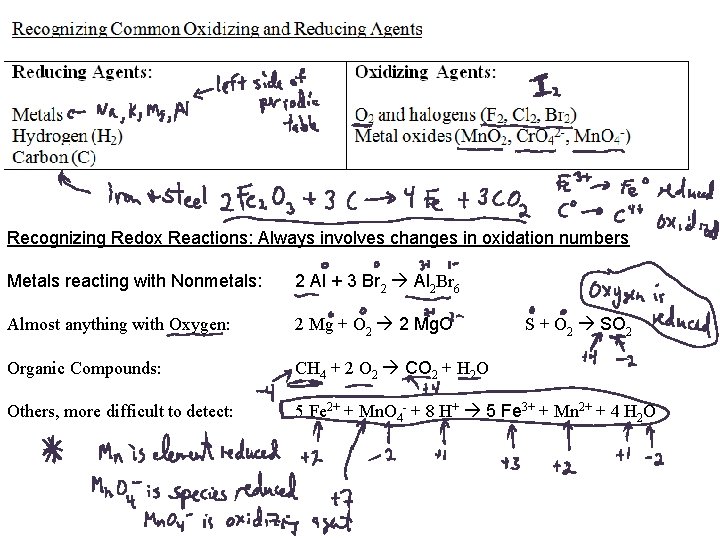 Recognizing Common Oxidizing and Reducing Agents
Reducing Agents:
← left side of periodic table
Metals ← Na, K, Mg, Al
Hydrogen (H2)
Carbon (C)
Oxidizing Agents:
I2
O2 and halogens (F2, Cl2, Br2)
Metal oxides (MnO2, CrO4 2-, MnO4-)
iron + steel 2Fe2O3 + 3 C → 4 Fe + 3CO2
Fe3+ → Fe0 reduced
C0 → C4+ oxidized
Recognizing Redox Reactions: Always involves changes in oxidation numbers
0 0 3+ 1-
Metals reacting with Nonmetals: 2 Al + 3 Br2 → Al2Br6
Oxygen is reduced
0 0 2+ 2- 0 0
Almost anything with Oxygen: 2 Mg + O2 → 2 MgO S + O2 → SO2
+4 -2
Organic Compounds: CH4 + 2 O2 → CO2 + H2O
-4 +4
Others, more difficult to detect: 5 Fe2+ + Mn.O4- + 8 H+ → 5 Fe3+ + Mn2+ + 4 H2O
+2 -2 +1 +3 +2 +1 -2
* Mn is element reduced
MnO4- is species reduced +7
MnO4- is oxidizing agent